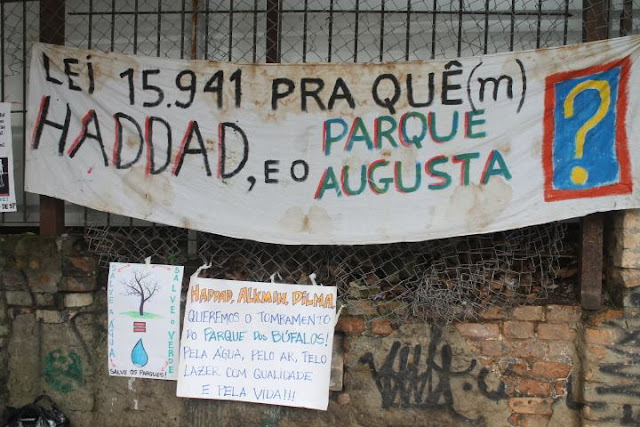 LEI 15.941 PRA QUÊ(m)
HADDAD, E O PARQUE
AUGUSTA ?
SALVE A ÁGUA
=
SALVE O VERDE
SALVE OS PARQUES!
HADDAD, ALKMIN, DILMA,
QUEREMOS O TOMBAMENTO
DO PARQUE DOS BÚFALOS!
PELA ÁGUA, PELO AR, PELO
LAZER COM QUALIDADE
E PELA VIDA!!!